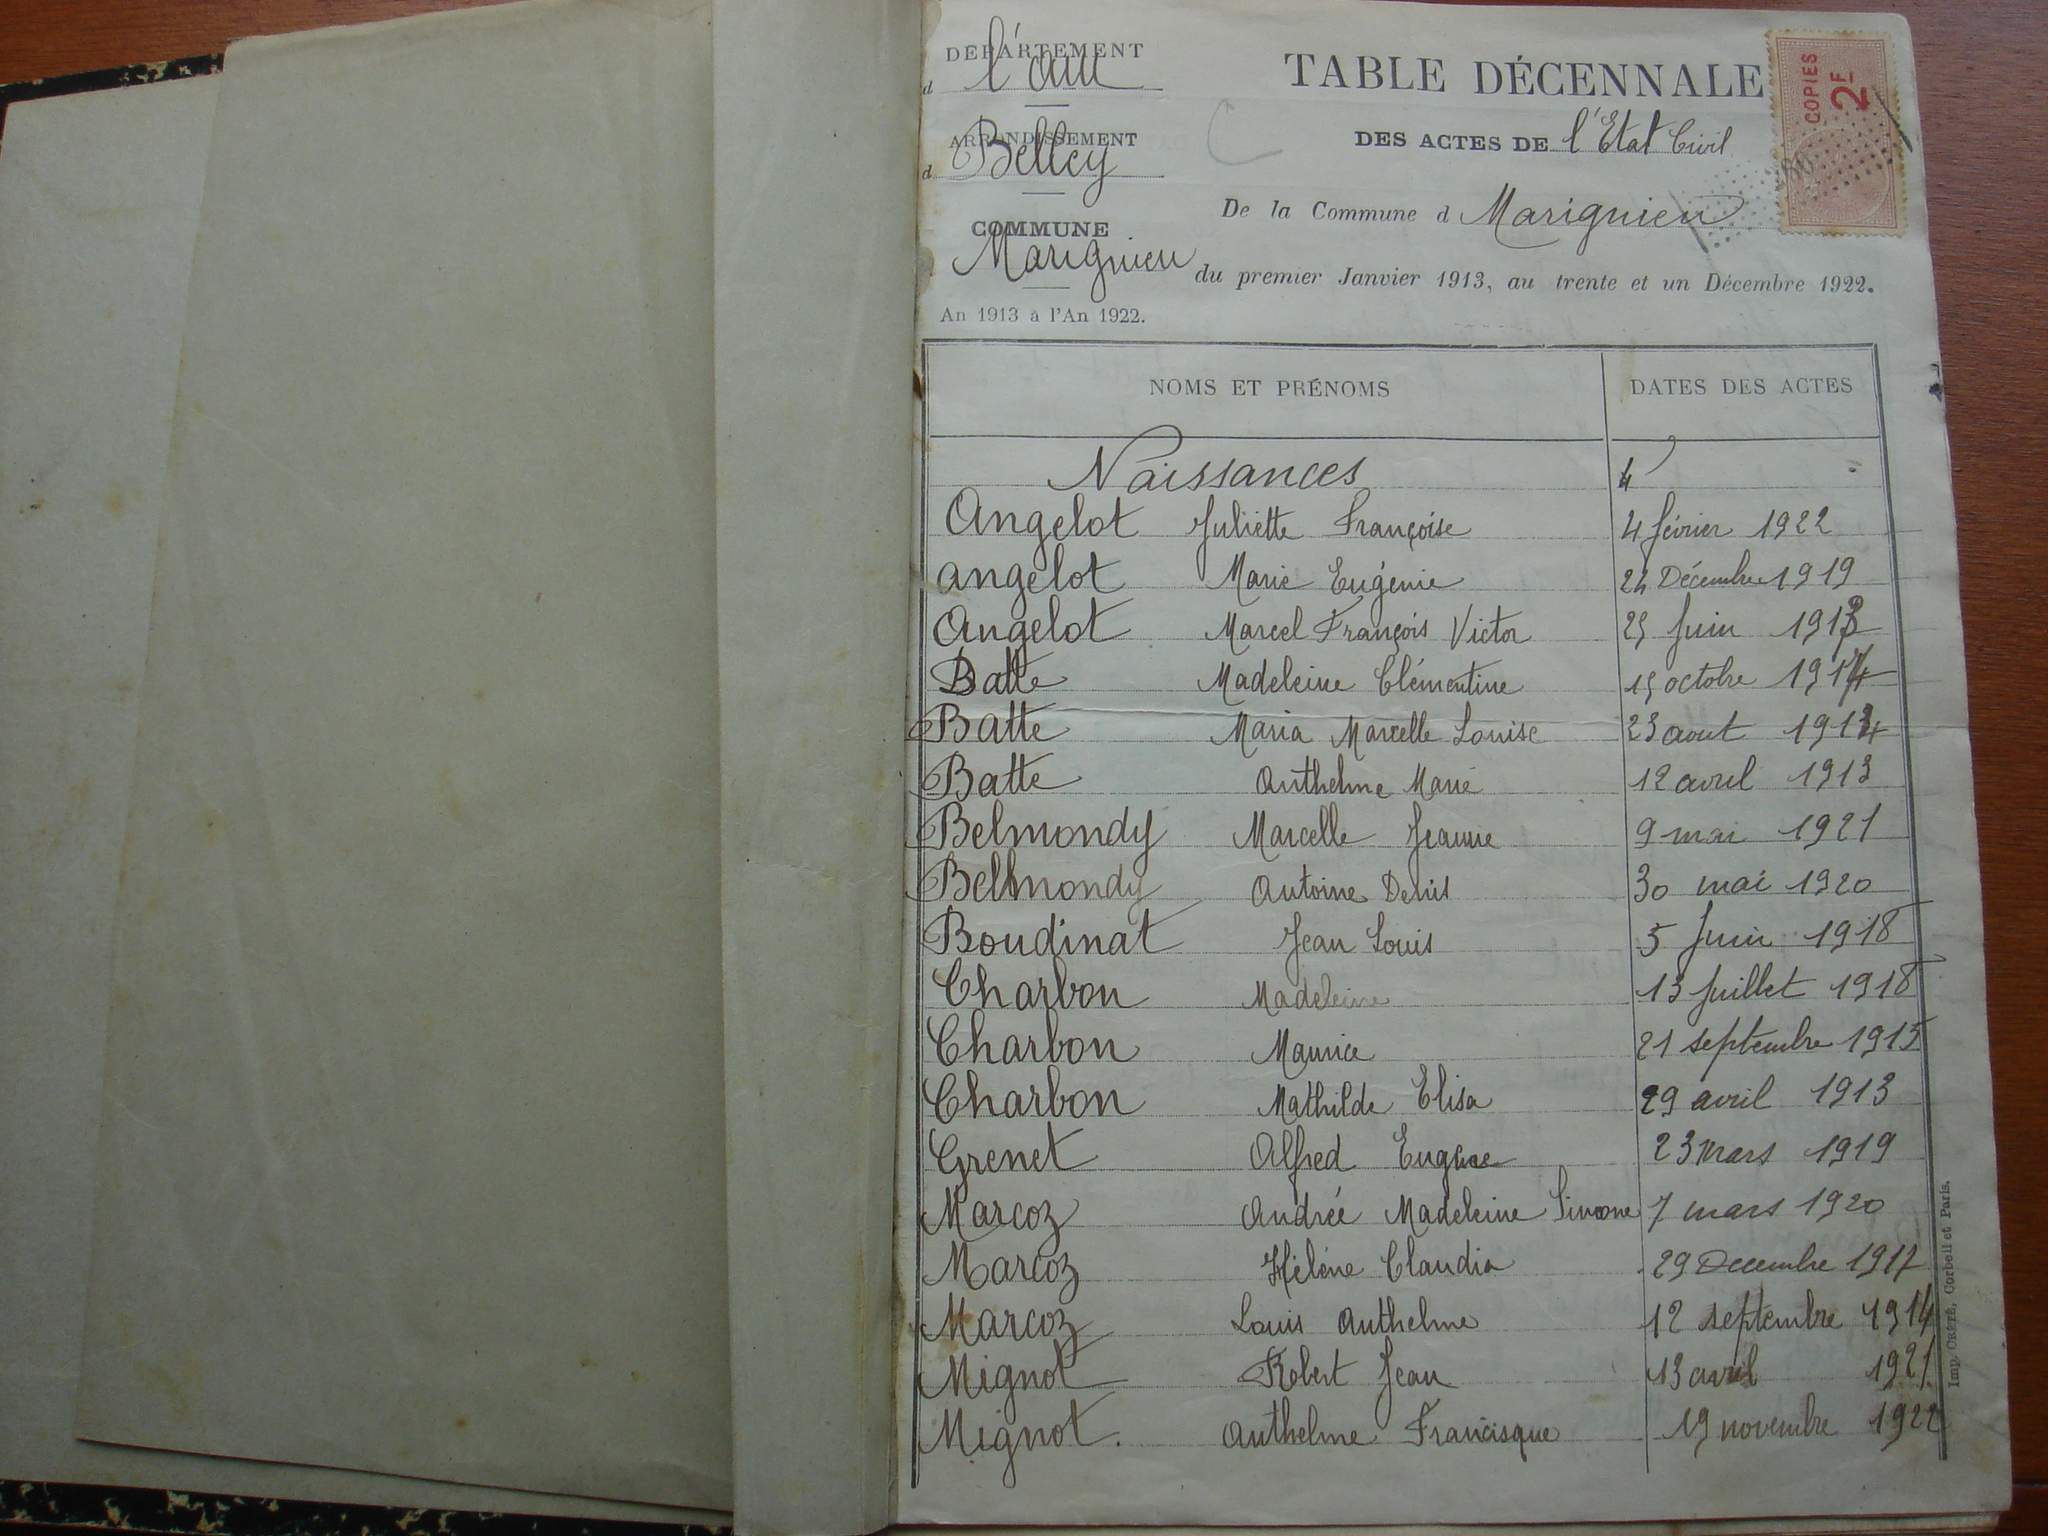 DÉPARTEMENT
d l'ain
ARRONDISSEMENT
d Belley
COMMUNE
Marignieu
An 1913 à l'An 1922.
TABLE DÉCENNALE
DES ACTES DE l'Etat Civil
De la Commune d Marignieu
du premier Janvier 1913, au trente et un Décembre 1922.
COPIES
2F
NOMS ET PRÉNOMS DATES DES ACTES
Naissances
Angelot Juliette Françoise 4 février 1922
angelot Marie Eugénie 24 Décembre 1919
Angelot Marcel François Victor 25 Juin 1913
Batte Madeleine Clémentine 15 octobre 1914
Batte Maria Marcelle Louise 23 aout 1914
Batte Anthelme Marie 12 avril 1913
Belmondy Marcelle Jeanne 9 mai 1921
Belmondy Antoine Denis 30 mai 1920
Boudinat Jean Louis 5 Juin 1918
Charbon Madeleine 13 Juillet 1918
Charbon Maurice 21 septembre 1915
Charbon Mathilde Elisa 29 avril 1913
Grenet Alfred Eugène 23 mars 1919
Marcoz Andrée Madeleine Simone 7 mars 1920
Marcoz Hélène Claudia 29 Decembre 1917
Marcoz Louis Anthelme 12 septembre 1914
Mignot Robert Jean 13 avril 1921
Mignot. Anthelme Francisque 19 novembre 1922
Imp. CRÉTÉ, Corbeil et Paris.